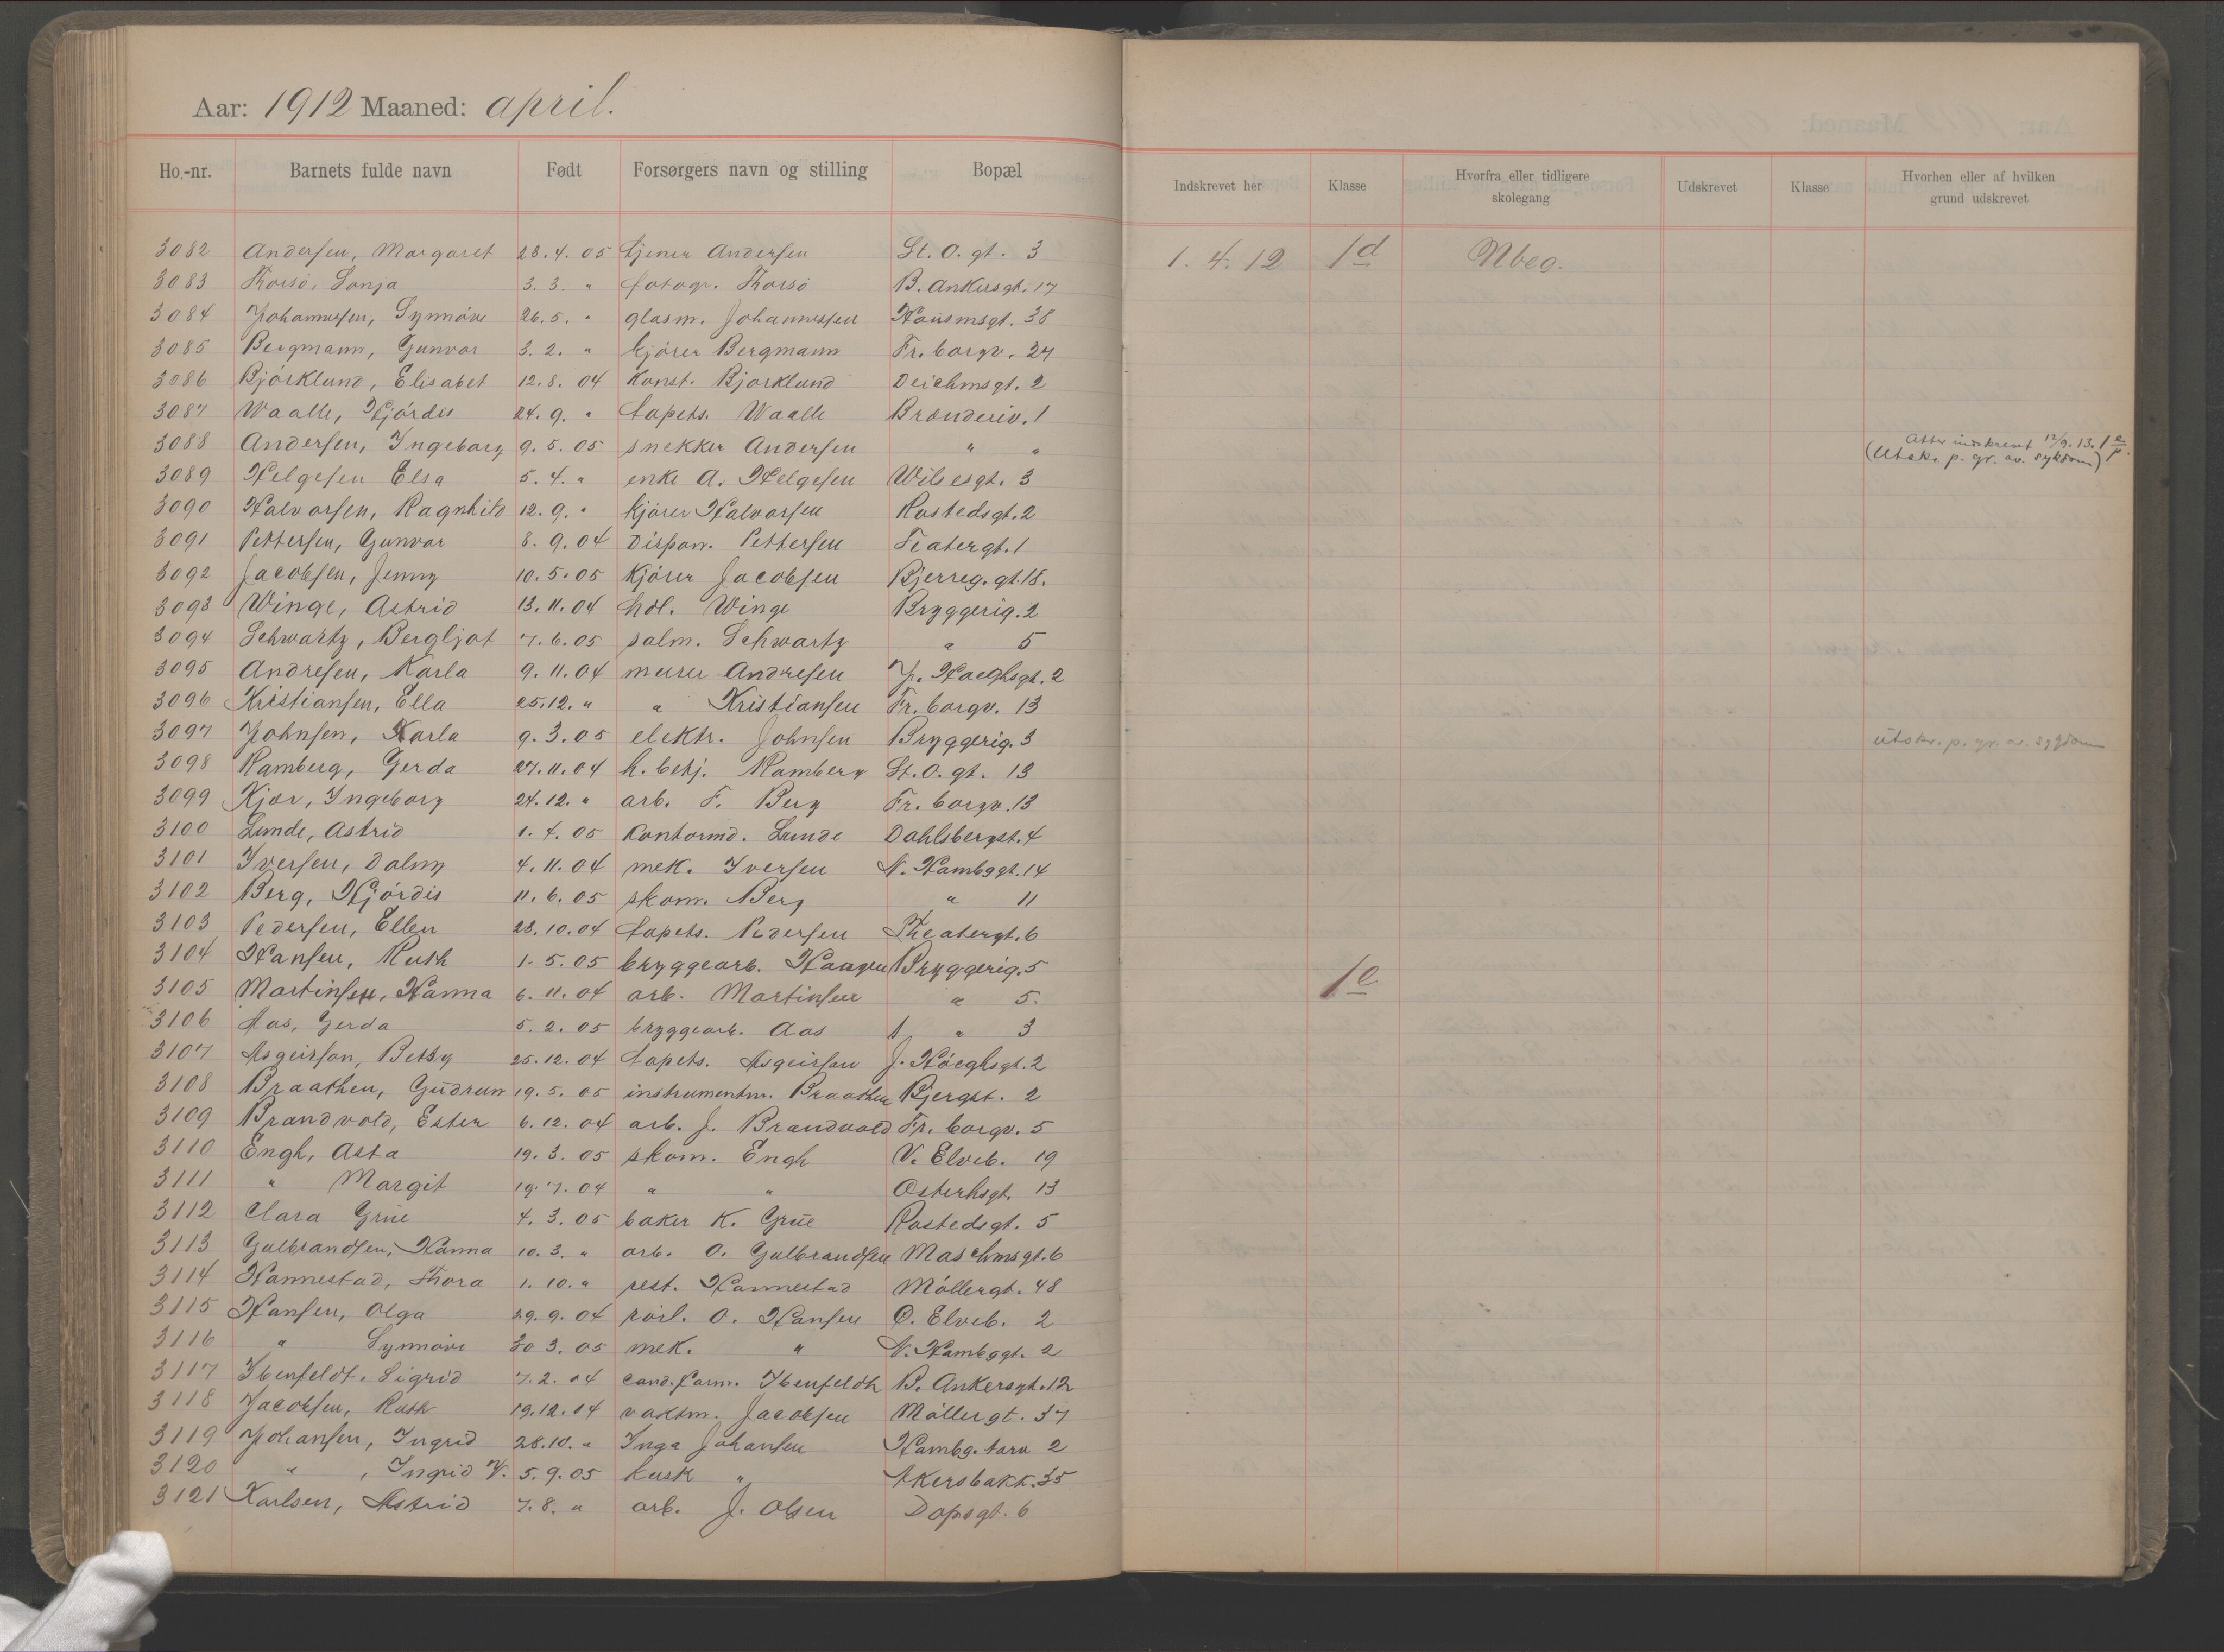 Aar: 1912 Maaned: april.
Ho.-nr. Barnets fulde navn Født Forsørgers navn og stilling Bopæl
3082 Andersen, Margaret 28.4.05 tjener Andersen St. O. gt. 3
3083 Thorsö, Sonja 3.3. " fotogr. Thorsö B. Ankersgt. 17
3084 Johannesen, Synnöve 26.5. " glasm. Johannessen Hausmsgt. 38
3085 Bergmann, Gunvor 3.2. " kjörer Bergmann Fr. borgv. 24
3086 Björklund, Elisabet 12.8.04 Konst. Bjorklund Deichmsgt. 2
3087 Waalle, Hjördis 24.9. " tapets. Waalle Brænderiv. 1
3088 Andersen, Ingeborg 9.5.05 snekker Andersen " "
3089 Helgesen Elsa 5.4. " enke A. Helgesen Wilsesgt. 3
3090 Halvorsen, Ragnhild 12.9. " kjörer Halvorsen Rostedsgt. 2
3091 Pettersen, Gunvor 8.9.04 Dispon. Pettersen Teatergt. 1
3092 Jacobsen, Jenny 10.5.05 Kjörer Jacobsen Bjerreg. gt. 18.
3093 Winge, Astrid 13.11.04 hdl. Winge Bryggerig. 2
3094 Schwartz, Bergljot 7.6.05 salm. Schwartz " 5
3095 Andresen, Karla 9.11.04 murer Andresen J. Høeghsgt. 2
3096 Kristiansen, Ella 25.12. " " Kristiansen Fr. borgv. 13
3097 Johnsen, Karla 9.3.05 elektr. Johnsen Bryggerig. 3
3098 Ramberg, Gerda 27.11.04 h. betj. Ramberg St. O. gt. 13
3099 Kjær, Ingeborg 24.12. " arb. F. Berg Fr. borgv. 13
3100 Lunde, Astrid 1.4.05 Kontormd. Lunde Dahlsbergst. 4
3101 Iversen, Dalny 4.11.04 mek. Iversen N. Hambggt. 14
3102 Berg, Hjördis 11.6.05 skom. Berg " 11
3103 Pedersen, Ellen 23.10.04 tapets. Pedersen Theatergt. 6
3104 Hansen, Ruth 1.5.05 bryggearb. Hansen Bryggerig. 5
3105 Martinsen, Hanna 6.11.04 arb. Martinsen " 5.
3106 Aas, Gerda 5.2.05 bryggearb. Aas " 3
3107 Asgeirson, Betsy 25.12.04 tapets. Asgeirson J. Höeghsgt. 2
3108 Braathen, Gudrun 19.5.05 instrumentm. Braathen Bjergst. 2
3109 Brandvold, Ester 6.12.04 arb. J. Brandvold Fr. borgv. 5
3110 Engh, Asta 19.3.05 skom. Engh V. Elveb. 19
3111 " Margit 19.7.04 " " Osterhsgt. 13
3112 Clara Grue 4.3.05 baker K. Grue Rostedsgt. 5
3113 Gulbrandsen, Hanna 10.3. " arb. O. Gulbrandsen Maschmsgt. 6
3114 Hannestad, Thora 1.10. " rest. Hannestad Möllergt. 48
3115 Hansen, Olga 29.9.04 rörl. O. Hansen O. Elveb. 2
3116 " Synnöve 30 3.05 mek. " N. Hambggt. 2
3117 Ibenfeldt, Sigrid 7.2.04 cand. farm. Ibenfeldt B. Ankersgt. 12
3118 Jacobsen, Ruth 19.12.04 vaktm. Jacobsen Möllergt. 37
3119 Johansen, Ingrid 28.10. " Inga Johansen Hambg. torv 2
3120 " , Ingrid V. 5.9.05 kusk " Akersbakk. 35
3121 Karlsen, Astrid 7.8. " arb. J. Olsen Dopsgt. 6
Indskrevet her Klasse Hvorfra eller tidligere skolegang Udskrevet Klasse Hvorhen eller af hvilken grund udskrevet
1.4.12 1d Nbeg.
Atter indskrevet 12/9.13. 1e
(Utskr. p. gr. av. sykdom)
utskr. p. gr. av. sygdom
1e